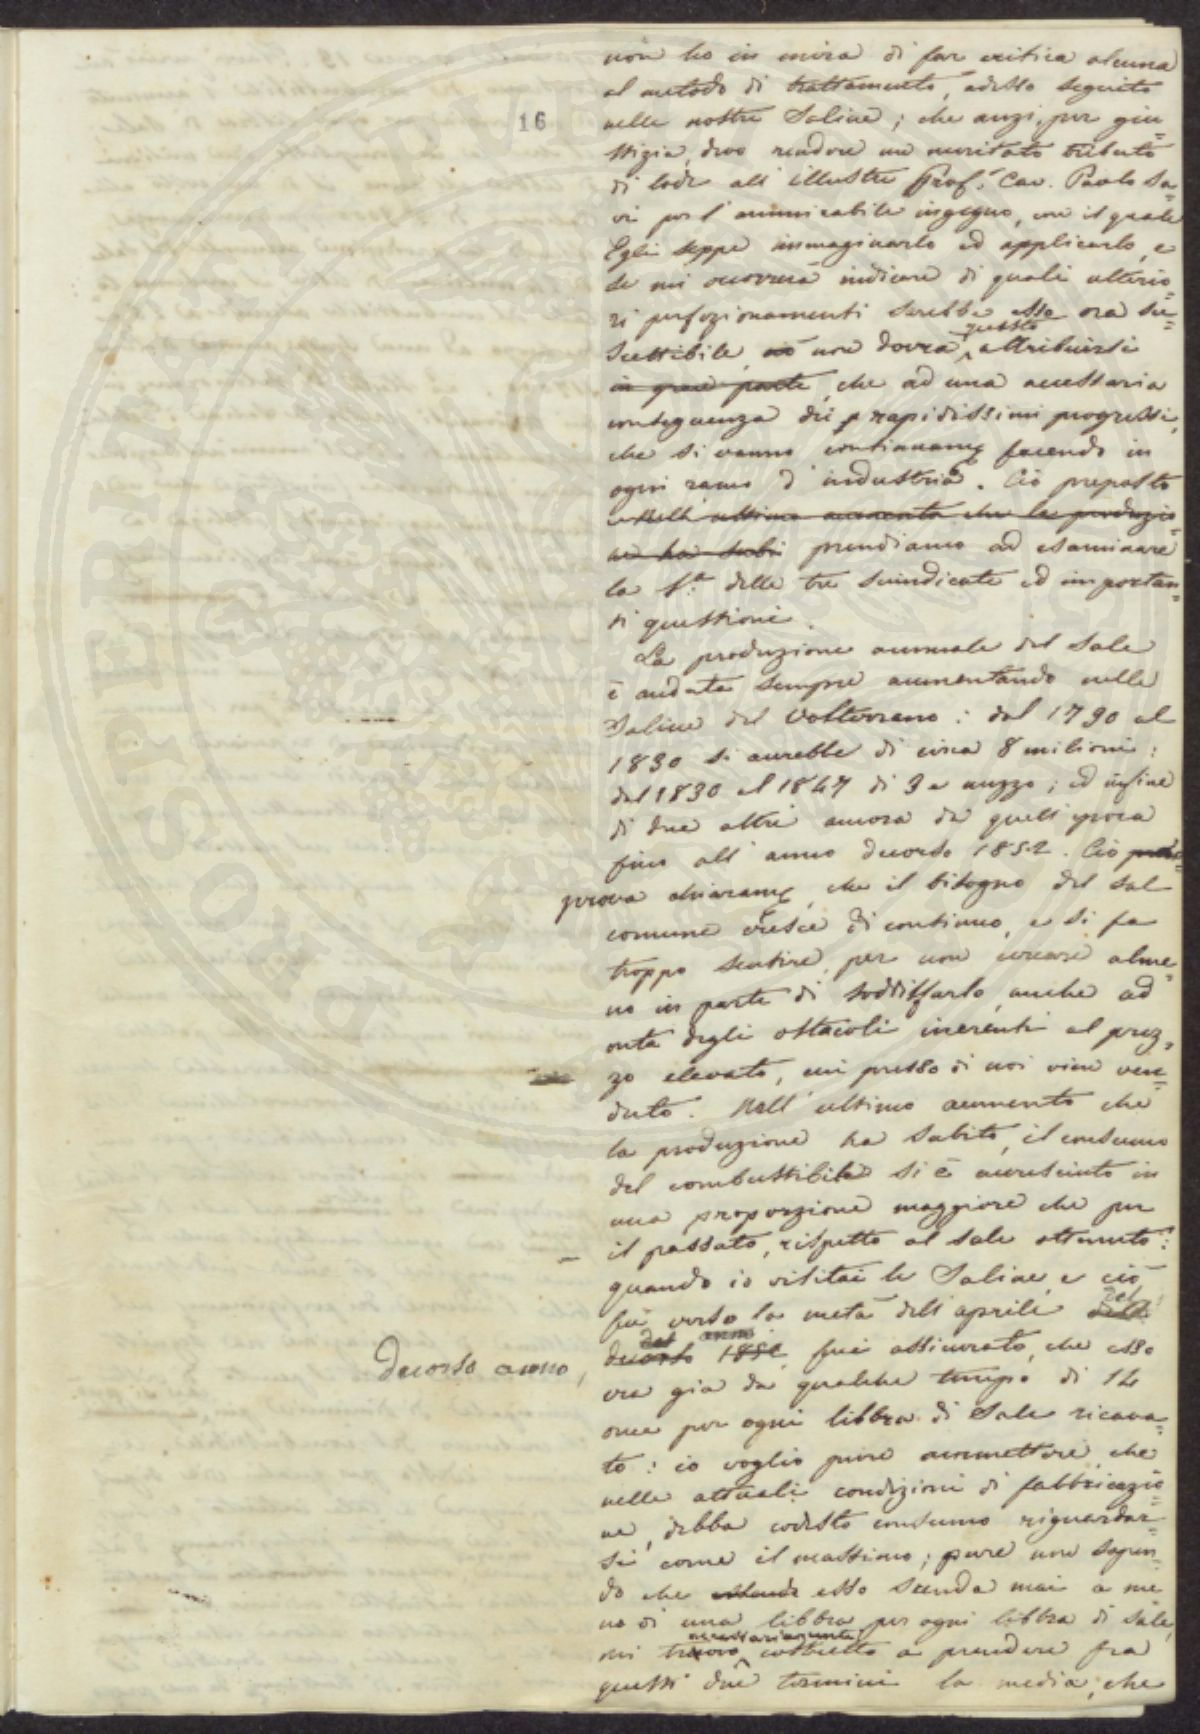 16
non ho in mira di far critica alcuna
al metodo di trattamento, adesso seguito
nelle nostre Saline; che anzi, per giu=
stizia, devo rendere un meritato tributo
di lode all' illustre Prof.r Cav. Paolo Sa=
vi per l' ammirabile ingegno, con il quale
Egli seppe immaginarlo ed applicarlo, e
se mi occorrerà indicare di quali ulterio=
ri perfezionamenti sarebbe esso ora su=
scettibile, ciò non dovrà questo attribuirsi
in gran parte, che ad una necessaria
conseguenza dei rapidissimi progressi,
che si vanno continuame facendo in
ogni ramo d' industria. Ciò preposto
nell' ultimo aumento che la produzio=
ne ha subi prendiamo ad esaminare
la 1.a delle tre suindicate ed importan=
ti questioni.
La produzione annuale del Sale
è andata sempre aumentando nelle
Saline del Volterrano: dal 1790 al
1830 si accrebbe di circa 8 milioni:
dal 1830 al 1847 di 3 e mezzo; ed infine
di due altri ancora da quell' epoca
fino all' anno decorso 1852. Ciò
prova chiarame, che il bisogno del sal
comune cresce di continuo, e si fa
troppo sentire, per non cercare alme=
no in parte di soddisfarlo, anche ad
onta degli ostacoli inerenti al prez=
zo elevato, cui presso di noi vien ven=
duto. Nell' ultimo aumento che
la produzione ha subito, il consumo
del combustibile si è accresciuto in
una proporzione maggiore che per
il passato, rispetto al Sale ottenuto:
quando io visitai le Saline, e ciò
fu verso la metà dell' aprile del
decorso anno,
decorso 1852 fui assicurato, che esso
era già da qualche tempo di 14
once per ogni libbra di Sale ricava=
to: io voglio pure ammettere, che
nelle attuali condizioni di fabbricazio=
ne, debba codesto consumo riguardar=
si come il massimo; pure non sapen=
do che esso scenda mai a me
no di una libbra per ogni libbra di sale,
mi trovo necessariamente costretto a prendere fra
questi due termini la media, che